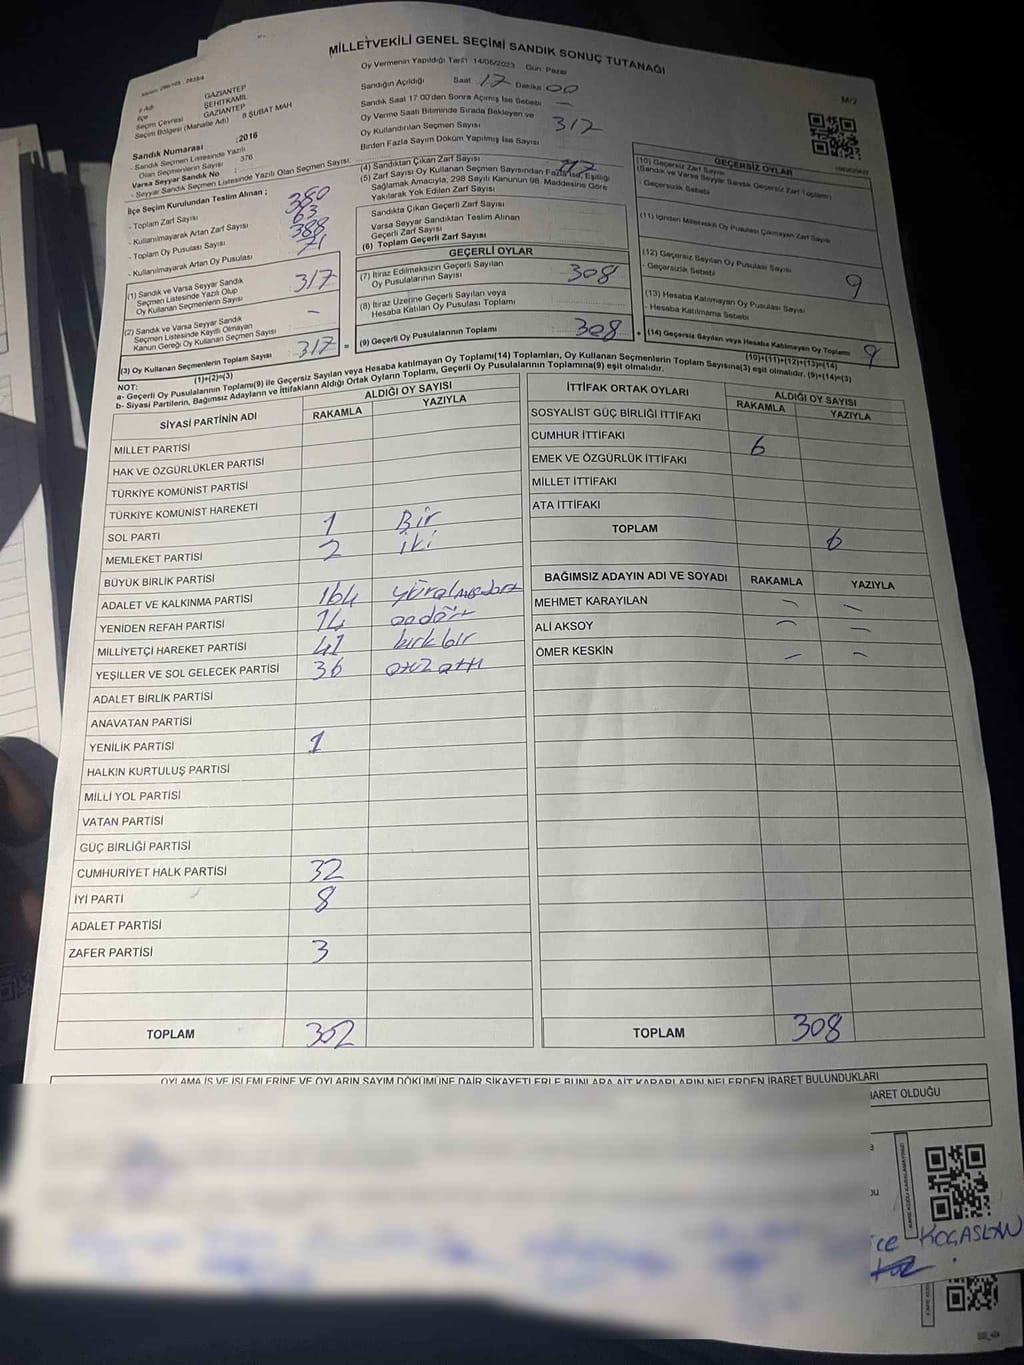 MİLLETVEKİLİ GENEL SEÇİMİ SANDIK SONUÇ TUTANAĞI
Oy Vermenin Yapıldığı Tarih 14/05/2023 Gün: Pazar
Sandığın Açıldığı Saat 17 Dakika 00
Sandık Saat 17:00'den Sonra Açılmış İse Sebebi —
Oy Verme Saati Bitiminde Sırada Bekleyen ve
Oy Kullandırılan Seçmen Sayısı 317
Birden Fazla Sayım Döküm Yapılmış İse Sayısı
M/2
İl Adı GAZİANTEP
İlçe ŞEHİTKAMİL
Seçim Çevresi GAZİANTEP
Seçim Bölgesi (Mahalle Adı) 8 ŞUBAT MAH
Sandık Numarası :2016
- Sandık Seçmen Listesinde Yazılı
Olan Seçmenlerin Sayısı : 376
Varsa Seyyar Sandık No :
- Seyyar Sandık Seçmen Listesinde Yazılı Olan Seçmen Sayısı:
İlçe Seçim Kurulundan Teslim Alınan ;
- Toplam Zarf Sayısı 380
- Kullanılmayarak Artan Zarf Sayısı 63
- Toplam Oy Pusulası Sayısı 388
- Kullanılmayarak Artan Oy Pusulası 71
(1) Sandık ve Varsa Seyyar Sandık
Seçmen Listesinde Yazılı Olup
Oy Kullanan Seçmenlerin Sayısı 317
(2) Sandık ve Varsa Seyyar Sandık
Seçmen Listesinde Kayıtlı Olmayan
Kanun Gereği Oy Kullanan Seçmen Sayısı —
(3) Oy Kullanan Seçmenlerin Toplam Sayısı 317
(1)+(2)=(3)
(4) Sandıktan Çıkan Zarf Sayısı
(5) Zarf Sayısı Oy Kullanan Seçmen Sayısından Fazla İse, Eşitliği
Sağlamak Amacıyla, 298 Sayılı Kanunun 98. Maddesine Göre
Yakılarak Yok Edilen Zarf Sayısı
Sandıkta Çıkan Geçerli Zarf Sayısı
Varsa Seyyar Sandıktan Teslim Alınan
Geçerli Zarf Sayısı
(6) Toplam Geçerli Zarf Sayısı
GEÇERLİ OYLAR
(7) İtiraz Edilmeksizin Geçerli Sayılan
Oy Pusulalarının Sayısı 308
(8) İtiraz Üzerine Geçerli Sayılan veya
Hesaba Katılan Oy Pusulası Toplamı
= (9) Geçerli Oy Pusulalarının Toplamı 308
GEÇERSİZ OYLAR
(10) Geçersiz Zarf Sayısı
(Sandık ve Varsa Seyyar Sandık Geçersiz Zarf Toplamı)
- Geçersizlik Sebebi
(11) İçinden Milletvekili Oy Pusulası Çıkmayan Zarf Sayısı
(12) Geçersiz Sayılan Oy Pusulası Sayısı
- Geçersizlik Sebebi 9
(13) Hesaba Katılmayan Oy Pusulası Sayısı
- Hesaba Katılmama Sebebi
+ (14) Geçersiz Sayılan veya Hesaba Katılmayan Oy Toplamı 9
(10)+(11)+(12)+(13)=(14)
NOT:
a- Geçerli Oy Pusulalarının Toplamı(9) ile Geçersiz Sayılan veya Hesaba katılmayan Oy Toplamı(14) Toplamları, Oy Kullanan Seçmenlerin Toplam Sayısına(3) eşit olmalıdır. (9)+(14)=(3)
b- Siyasi Partilerin, Bağımsız Adayların ve İttifakların Aldığı Ortak Oyların Toplamı, Geçerli Oy Pusulalarının Toplamına(9) eşit olmalıdır.
SİYASİ PARTİNİN ADI ALDIĞI OY SAYISI
RAKAMLA YAZIYLA
MİLLET PARTİSİ
HAK VE ÖZGÜRLÜKLER PARTİSİ
TÜRKİYE KOMÜNİST PARTİSİ
TÜRKİYE KOMÜNİST HAREKETİ
SOL PARTİ 1 Bir
MEMLEKET PARTİSİ 2 iki
BÜYÜK BİRLİK PARTİSİ
ADALET VE KALKINMA PARTİSİ 164
YENİDEN REFAH PARTİSİ 14 ondört
MİLLİYETÇİ HAREKET PARTİSİ 41 kırkbir
YEŞİLLER VE SOL GELECEK PARTİSİ 36 otuz altı
ADALET BİRLİK PARTİSİ
ANAVATAN PARTİSİ
YENİLİK PARTİSİ 1
HALKIN KURTULUŞ PARTİSİ
MİLLİ YOL PARTİSİ
VATAN PARTİSİ
GÜÇ BİRLİĞİ PARTİSİ
CUMHURİYET HALK PARTİSİ 32
İYİ PARTİ 8
ADALET PARTİSİ
ZAFER PARTİSİ 3
TOPLAM 302
İTTİFAK ORTAK OYLARI ALDIĞI OY SAYISI
RAKAMLA YAZIYLA
SOSYALİST GÜÇ BİRLİĞİ İTTİFAKI
CUMHUR İTTİFAKI 6
EMEK VE ÖZGÜRLÜK İTTİFAKI
MİLLET İTTİFAKI
ATA İTTİFAKI
TOPLAM 6
BAĞIMSIZ ADAYIN ADI VE SOYADI RAKAMLA YAZIYLA
MEHMET KARAYILAN — —
ALİ AKSOY — —
ÖMER KESKİN — —
TOPLAM 308
OYLAMA İŞ VE İŞLEMLERİNE VE OYLARIN SAYIM DÖKÜMÜNE DAİR ŞİKAYETLERLE BUNLARA AİT KARARLARIN NELERDEN İBARET BULUNDUKLARI
İBARET OLDUĞU
KOÇASLAN